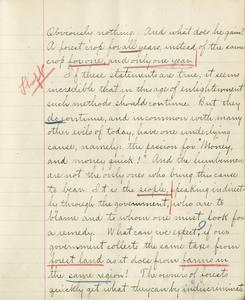 Obviously nothing. And what does he gain?
A forest crop for all years, instead of the same
crop for one, and only one year.
If these statements are true, it seems
incredible that in this age of enlightenment
such methods should continue. But they
do continue, and in common with many
other evils of today, have one underlying
cause, namely: the passion for "Money,
and money quick!" And the lumbermen
are not the only ones who bring this cause
to bear. It is the people, speaking indirect-
ly through the government, who are to
blame and to whom one must look for
a remedy. What can we expect, if our
government collects the same taxes from
forest land as it does from farms in
the same region? The owners of forest
quickly get what they can by indiscriminate